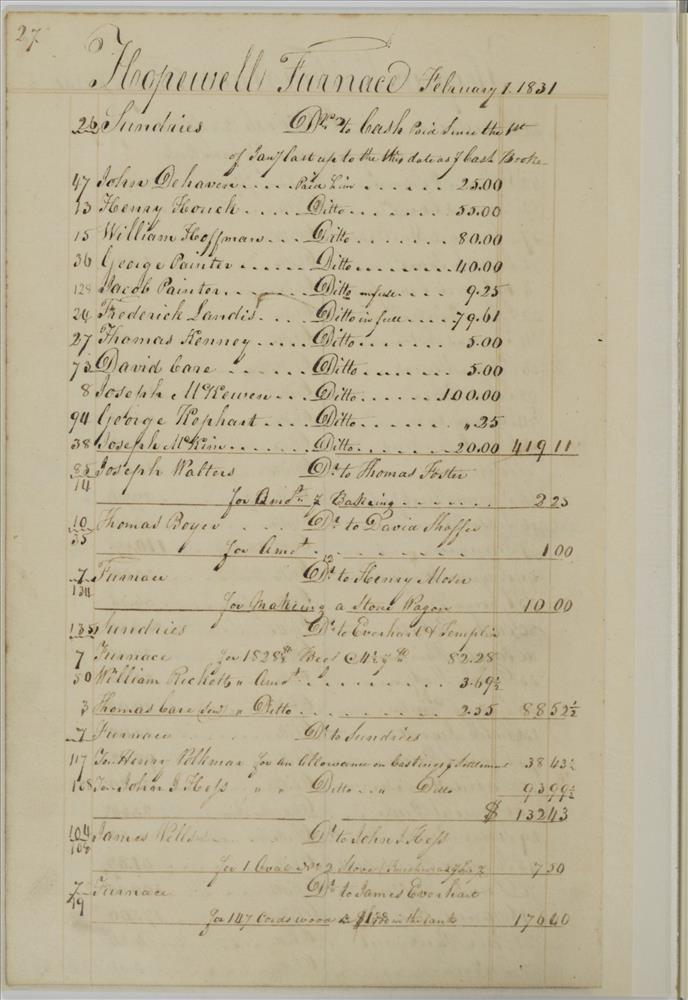 27
Hopewell Furnace February 1. 1831
26 Sundries Drs to Cash Paid Since the 1st
of Jany last up to the this date as of Cash Booke
47 John Dehaven .... Paid him ...... 25.00
13 Henry Houck .... Ditto ....... 55.00
15 William Hoffman ... Ditto ....... 80.00
36 George Painter ...... Ditto ........ 40.00
128 Jacob Painter ...... Ditto in full .... 9.25
24 Frederick Landis .... Ditto in full .... 79.61
27 Thomas Kenney .... Ditto ....... 5.00
73 David Care .... Ditto ....... 5.00
8 Joseph McKewen ... Ditto ...... 100.00
94 George Kephart .... Ditto ...... " 25
38 Joseph McKim ...... Ditto ...... 20.00 419 11
Joseph Walters Dr to Thomas Foster
14
for Amot of Baskering ....... 2 25
10 Thomas Boyer ... Dr to David Shoffer
35
for Amot .......... 1 00
7 Furnace Dr to Henry Moser
134
for Making a Stone Wagon 10 00
135 Sundries Dr to Everhart & Templin
7 Furnace for 1828 82.28
50 William Ricketts " Amot ........ 3.69½
3 Thomas Care " Ditto ........ 2.55 88 52½
7 Furnace Dr to Sundries
117 To Henry Volkmar for an Allowance on Castings Settlement 38 43½
108 To John J Hess " " Ditto .. " Ditto 93 99½
$ 132 43
104 James Wells Dr to John J Hess
108
for 1 Oval No 2 Stove 7 50
7 Furnace Dr to James Everhart
for 147 Cords wood in the rank 176 40